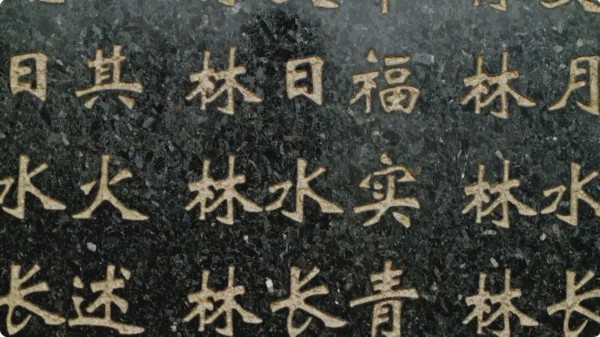 日其 林日福 林月
水火 林水实 林水
长述 林长青 林长